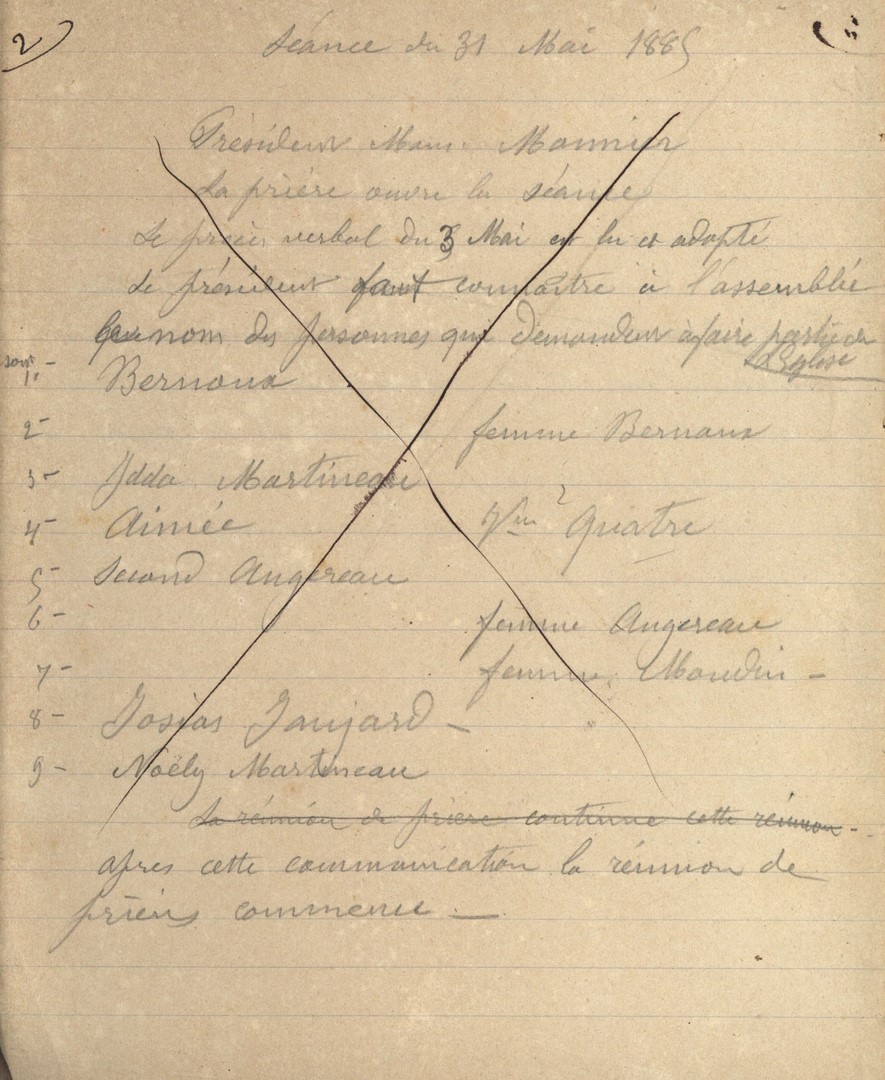 2
Séance du 31 Mai 1885
Président Mons. Monnier
La prière ouvre la séance
Le procès verbal du 3 Mai est lu et adopté
Le président fait connaitre à l'assemblée
nom des personnes qui demandent à faire partie de
L'Eglise
sont
1. - Bernoux
2 - femme Bernoux
3 - Martineau
4 - Aimée Quatre
5 - Second Augereau
6 - femme Augereau
7 - femme Moudin -
8 - Josias Jaujard -
9 - Noëly Martineau
La réunion de prière continue cette réunion -
apres cette communication la réunion de
prières commence -